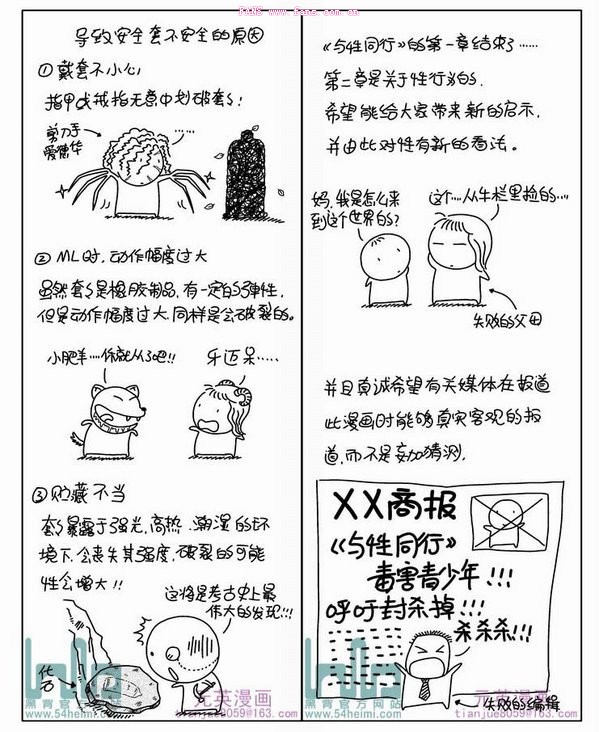 FANS www.fans.com.cn
导致安全套不安全的原因
①戴套不小心
指甲或戒指无意中划破套套!
剪刀手
爱德华
……
② ML时,动作幅度过大
虽然套套是橡胶制品,有一定的弹性,
但是动作幅度过大,同样是会破裂的。
小肥羊……你就从了吧!!
牙迈呆……
③贮藏不当
套套暴露于强光,高热,潮湿的环
境下,会丧失其强度,破裂的可能
性会增大!!
这将是考古史上最
伟大的发现!!!
化石
黑背官方网站
www.54heimi.com
元英漫画
tianjue8059@163.com
《与性同行》的第一章结束了……
第二章是关于性行为的.
希望能给大家带来新的启示.
并由此对性有新的看法。
妈,我是怎么来
到这个世界的?
这个……从牛栏里捡的……
失败的父母
并且真诚希望有关媒体在报道
此漫画时能够真实客观的报
道,而不是妄加猜测.
XX商报
《与性同行》
毒害青少年!!!
呼吁封杀掉!!!
杀杀杀!!!
失败的编辑
黑背官方网站
www.54heimi.com
元英漫画
tianjue8059@163.com